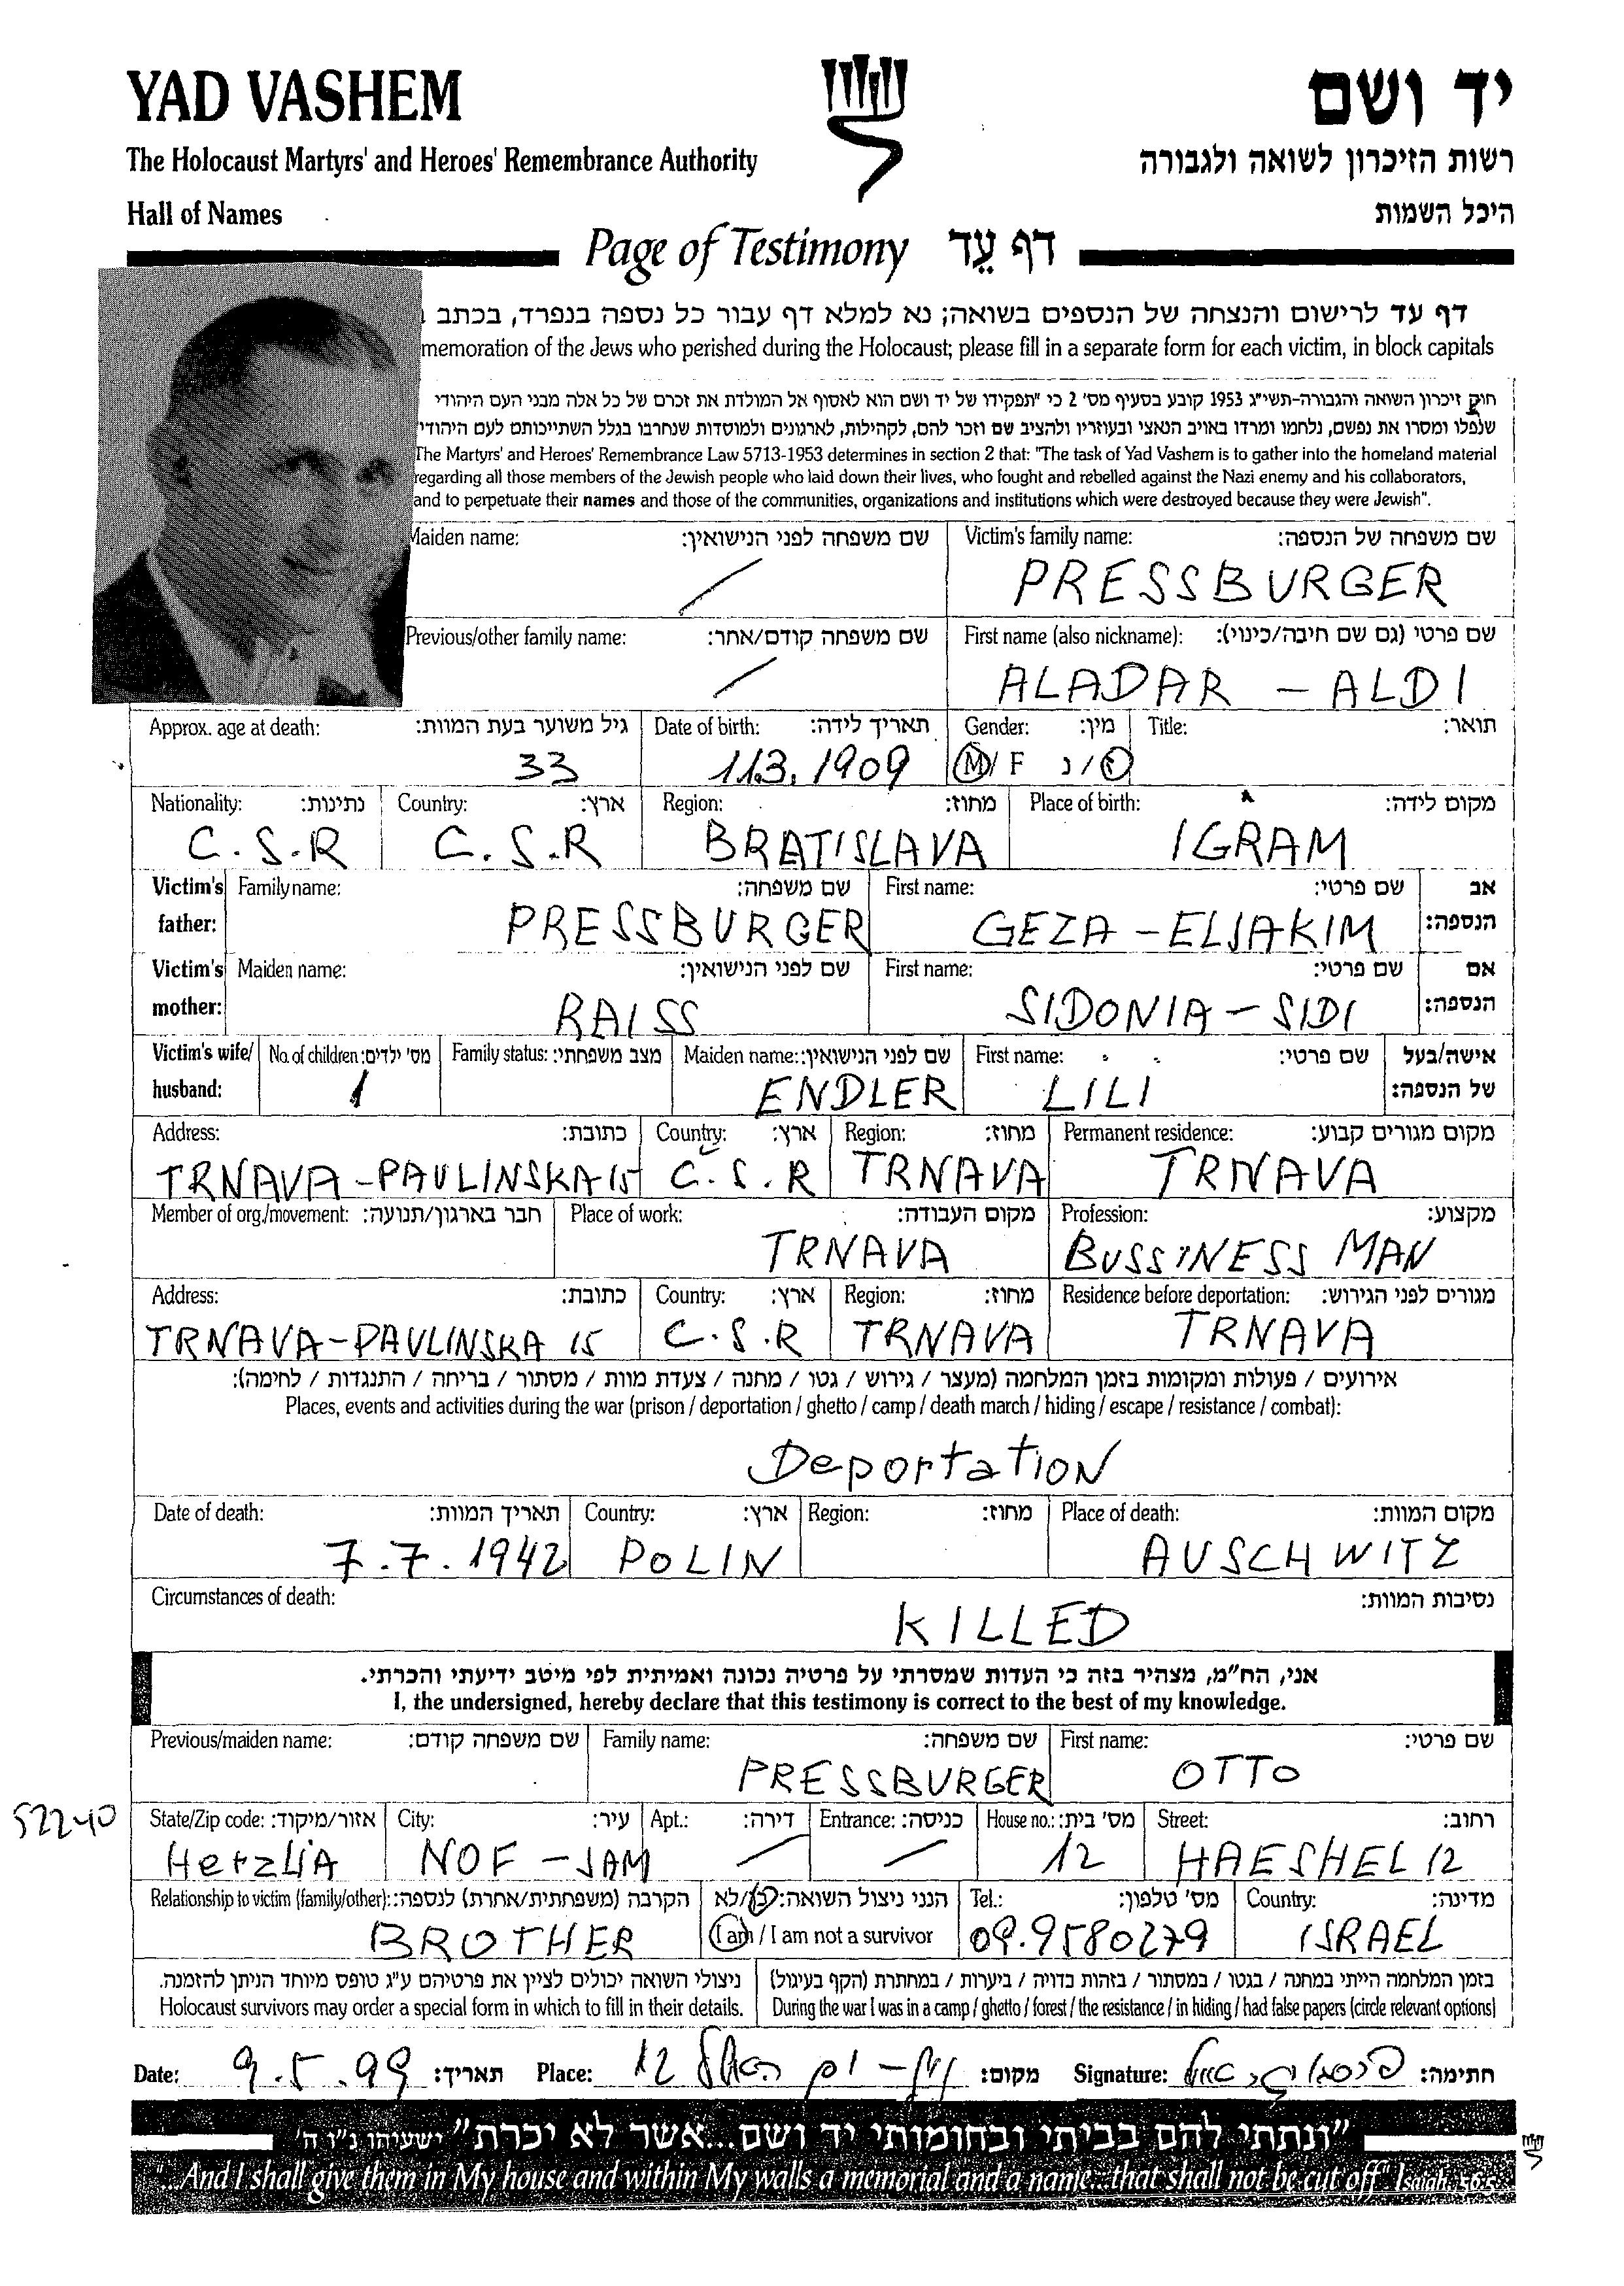 YAD VASHEM
יד ושם
The Holocaust Martyrs' and Heroes' Remembrance Authority
רשות הזיכרון לשואה ולגבורה
Hall of Names
היכל השמות
Page of Testimony דף עֵד
דף עד לרישום והנצחה של הנספים בשואה; נא למלא דף עבור כל נספה בנפרד, בכתב
memoration of the Jews who perished during the Holocaust; please fill in a separate form for each victim, in block capitals
חוק זיכרון השואה והגבורה-תשי"ג 1953 קובע בסעיף מס' 2 כי "תפקידו של יד ושם הוא לאסוף אל המולדת את זכרם של כל אלה מבני העם היהודי
שנפלו ומסרו את נפשם, נלחמו ומרדו באויב הנאצי ובעוזריו ולהציב שם וזכר להם, לקהילות, לארגונים ולמוסדות שנחרבו בגלל השתייכותם לעם היהודי"
The Martyrs' and Heroes' Remembrance Law 5713-1953 determines in section 2 that: "The task of Yad Vashem is to gather into the homeland material
regarding all those members of the Jewish people who laid down their lives, who fought and rebelled against the Nazi enemy and his collaborators,
and to perpetuate their names and those of the communities, organizations and institutions which were destroyed because they were Jewish".
Maiden name: שם משפחה לפני הנישואין: Victim's family name: שם משפחה של הנספה:
/ PRESSBURGER
Previous/other family name: שם משפחה קודם/אחר: First name (also nickname): שם פרטי (גם שם חיבה/כינוי):
/ ALADAR - ALDI
Approx. age at death: גיל משוער בעת המוות: Date of birth: תאריך לידה: Gender: מין: Title: תואר:
33 11.3.1909 M/ F ז / נ
Nationality: נתינות: Country: ארץ: Region: מחוז: Place of birth: מקום לידה:
C.S.R C.S.R BRATISLAVA IGRAM
Victim's father: Family name: שם משפחה: First name: שם פרטי: אב הנספה:
PRESSBURGER GEZA - ELJAKIM
Victim's mother: Maiden name: שם לפני הנישואין: First name: שם פרטי: אם הנספה:
RAISS SIDONIA - SIDI
Victim's wife/ husband: No. of children: מס' ילדים: Family status: מצב משפחתי: Maiden name: שם לפני הנישואין: First name: שם פרטי: אישה/בעל של הנספה:
1 ENDLER LILI
Address: כתובת: Country: ארץ: Region: מחוז: Permanent residence: מקום מגורים קבוע:
TRNAVA - PAULINSKA 15 C.S.R TRNAVA TRNAVA
Member of org./movement: חבר בארגון/תנועה: Place of work: מקום העבודה: Profession: מקצוע:
TRNAVA BUSSINESS MAN
Address: כתובת: Country: ארץ: Region: מחוז: Residence before deportation: מגורים לפני הגירוש:
TRNAVA - PAULINSKA 15 C.S.R TRNAVA TRNAVA
אירועים / פעולות ומקומות בזמן המלחמה (מעצר / גירוש / גטו / מחנה / צעדת מוות / מסתור / בריחה / התנגדות / לחימה):
Places, events and activities during the war (prison / deportation / ghetto / camp / death march / hiding / escape / resistance / combat):
Deportation
Date of death: תאריך המוות: Country: ארץ: Region: מחוז: Place of death: מקום המוות:
7.7.1942 POLIN AUSCHWITZ
Circumstances of death: נסיבות המוות:
KILLED
אני, הח"מ, מצהיר בזה כי העדות שמסרתי על פרטיה נכונה ואמיתית לפי מיטב ידיעתי והכרתי.
I, the undersigned, hereby declare that this testimony is correct to the best of my knowledge.
Previous/maiden name: שם משפחה קודם: Family name: שם משפחה: First name: שם פרטי:
PRESSBURGER OTTO
52240
State/Zip code: אזור/מיקוד: City: עיר: Apt.: דירה: Entrance: כניסה: House no.: מס' בית: Street: רחוב:
Herzlia NOF - JAM / / 12 HAESHEL 12
Relationship to victim (family/other): הקרבה (משפחתית/אחרת) לנספה: הנני ניצול השואה: כן/לא Tel.: מס' טלפון: Country: מדינה:
BROTHER I am / I am not a survivor 09.9580279 ISRAEL
ניצולי השואה יכולים לציין את פרטיהם ע"ג טופס מיוחד הניתן להזמנה. בזמן המלחמה הייתי במחנה / בגטו / במסתור / בזהות בדויה / ביערות / במחתרת (הקף בעיגול)
Holocaust survivors may order a special form in which to fill in their details. During the war I was in a camp / ghetto / forest / the resistance / in hiding / had false papers (circle relevant options)
Date: 9.5.99 תאריך: Place: נוף-ים האשל 12 מקום: Signature: חתימה:
"ונתתי להם בביתי ובחומותי יד ושם...אשר לא יכרת" ישעיהו נ"ו ה'
"...And I shall give them in My house and within My walls a memorial and a name...that shall not be cut off" Isaiah, 56:5